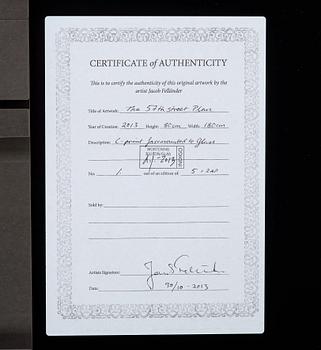 CERTIFICATE of AUTHENTICITY
This is to certify the authenticity of this original artwork by the
artist Jacob Felländer
Title of Artwork: The 57th street Plan
Year of Creation: 2013 Height: 80cm Width: 180cm
Description: C-print facemounted to Glass
No. 1 out of an edition of 5+2AP
Sold by:
Artists Signature:
Date: 30/10-2013